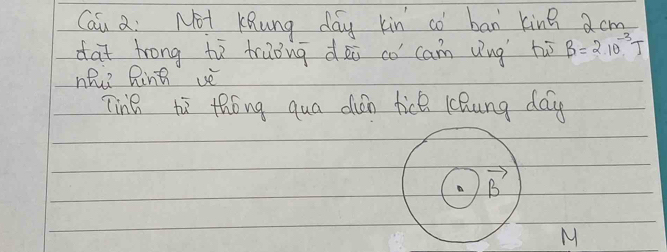 Câu 2: Một khung dây kín có bán kính 2cm
đặt trong từ trường đều có cảm ứng từ B = 2.10⁻³ T
như hình vẽ
Tính từ thông qua diện tích khung dây
B
M